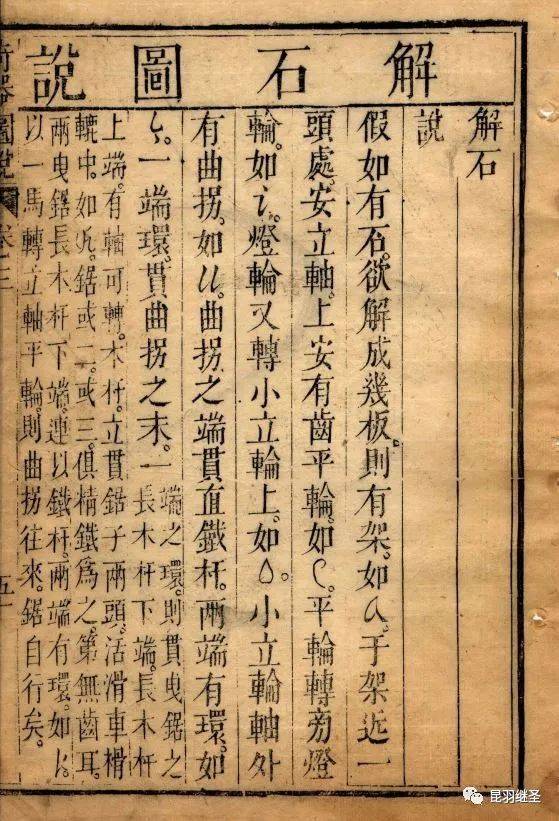 解石圖說
解石
說
假如有石。欲解成幾板。則有架。如𠆭。于架近一
頭處。安立軸。上安有齒平輪。如乀。平輪轉旁燈
輪。如讠。燈輪又轉小立輪上。如。小立輪軸外
有曲拐。如。曲拐之端貫直鐵杆。兩端有環。如
。一端環。貫曲拐之末。一端之環。則貫曳鋸之
長木杆下端。長木杆
上端。有軸可轉。木杆。立貫鋸子兩頭。活滑車槽
轆中。如。鋸或二。或三。俱精鐵為之。第無齒耳。
兩曳鋸長木杆下端。連以鐵杆。兩端有環。如。
以一馬轉立軸平輪。則曲拐往來。鋸自行矣。
奇器圖說 卷三
五十
昆羽继圣